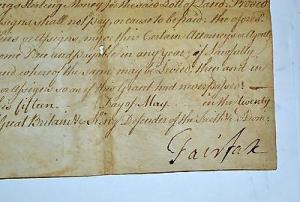 Sterling Money for the said Lott of Land. Provided
Assigns shall not pay, or cause to be paid the afores
or Assigns, or to his Certain Attorney or
Time Due and payable in any year if Lawfully
and where the same may be Levied then and in
or Assigns as if this Grant had never passed
fifteen Day of May in the twenty
Great Britain &c King Defender of the Faith &c
Fairfax